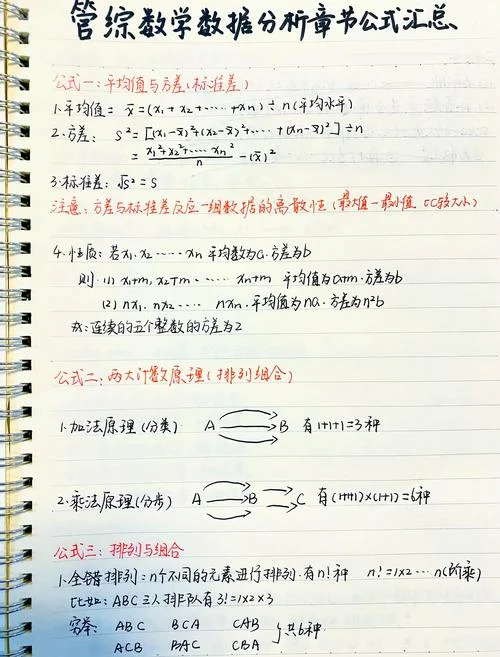 管综数学数据分析章节公式汇总
公式一:平均值与方差(标准差)
1.平均值 = x̄ = (x₁ + x₂ + ····· + xn) ÷ n (平均水平)
2.方差: S² = [(x₁-x̄)²+(x₂-x̄)²+···· + (xn-x̄)²] ÷ n
= x₁²+x₂²+····xn² / n - (x̄)²
3.标准差: √S² = S
注意:方差与标准差反应一组数据的离散性(最大值-最小值
4.性质:若x₁.x₂ ····· xn 平均数为a.方差为b
则:(1) x₁+m, x₂+m ····· xn+m 平均值为a+m.方差为b
(2) nx₁. nx₂ ···· nxn.平均值为na.方差为n²b
:连续的五个整数的方差为2
公式二:两大计数原理(排列组合)
1.加法原理(分类) A B 有1+1+1=3种
2.乘法原理(分步) A B C 有(1+1+1)×(1+1)=6种
公式三:排列与组合
1.全错排列:n个不同的元素进行排列.有n!种 n!=1×2 ··· n(阶乘)
比如:ABC三人排队有3!=1×2×3
穷举: ABC BCA CAB }共6种
ACB BAC CBA